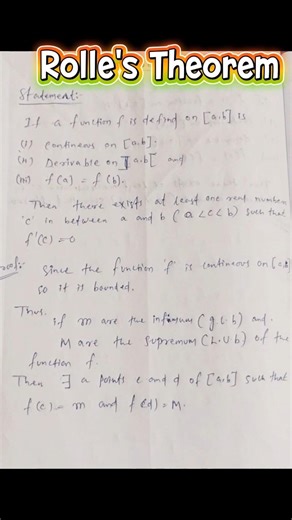 Rolle's Theorem
Statement:-
If a function f is defind on [a,b] is
(i) Continous on [a,b].
(ii) Derivable on ]a,b[ and
(iii) f(a) = f(b).
Then there exists at least one real number
'c' in between a and b (a<c<b) such that
f'(c)=0
Since the function 'f' is continous on
so it is bounded.
Thus,
if m are the infimum (g.l.b) and
M are the supremum (L.U.b) of the
function f.
Then ∃ a points c and d of [a,b] such that
f(c)= m and f(d)= M.